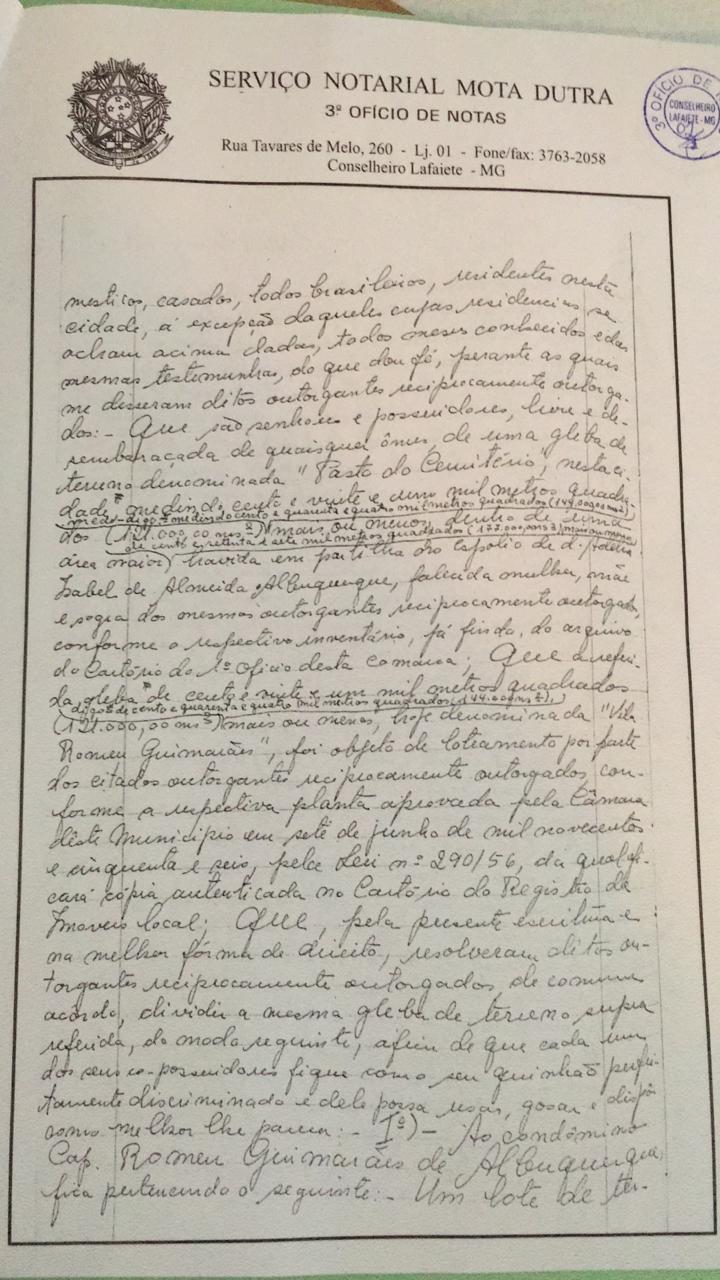 SERVIÇO NOTARIAL MOTA DUTRA
3º OFÍCIO DE NOTAS
Rua Tavares de Melo, 260 - Lj. 01 - Fone/fax: 3763-2058
Conselheiro Lafaiete - MG
3º OFÍCIO DE
CONSELHEIRO
LAFAIETE-MG
mesticos, casados, todos brasileiros, residentes nesta
cidade, á excepção daqueles cujas residencias se
acham acima dadas, todos meus conhecidos e das
mesmas testemunhas, do que dou fé, perante as quais
me disseram ditos outorgantes reciprocamente outorga-
dos:- Que são senhores e possuidores, livre e de-
sembaraçada de quaisquer ônus, de uma gleba de
terreno denominada "Pasto do Cemitério", nesta ci-
dade medindo cento e vinte e um mil metros quadra-
digo: medindo cento e quarenta e quatro mil metros quadrados
dos (121.000,00 ms²) mais ou menos, dentro de uma
de cento e setenta e sete mil metros quadrados (177.000,ms²) mais ou menos
área maior) havida em partilha do espólio de d.
Isabel de Almeida Albuquerque, falecida mulher, mãe
e sogra dos mesmos outorgantes reciprocamente outorgados,
conforme o respectivo inventário, já findo, do arquivo
do Cartório do 1º Oficio desta comarca; Que a referi-
da gleba de cento e vinte e um mil metros quadrados
digo: de cento e quarenta e quatro mil metros quadrados (144.000 ms²),
(121.000,00 ms²) mais ou menos, hoje denominada "Vila
Romeu Guimarães", foi objeto de loteamento por parte
dos citados outorgantes reciprocamente outorgados con-
forme a respectiva planta aprovada pela Câmara
dêste Municipio em sete de junho de mil novecentos
e cinquenta e seis, pela Lei nº 290/56, da qual fi-
cará cópia autenticada no Cartório do Registro de
Imoveis local; Que, pela presente escritura e
na melhor fórma de direito, resolveram ditos ou-
torgantes reciprocamente outorgados, de comum
acórdo, dividir a mesma gleba de terreno supra
referida, do modo seguinte, afim de que cada um
dos seus co-possuidores fique com o seu quinhão perfei-
tamente discriminado e dele possa usar, gosar e dispôr
como melhor lhe pareça:- 1º)- Ao condômino
Cap. Romeu Guimarães de Albuquerque,
fica pertencendo o seguinte:- Um lote de ter-